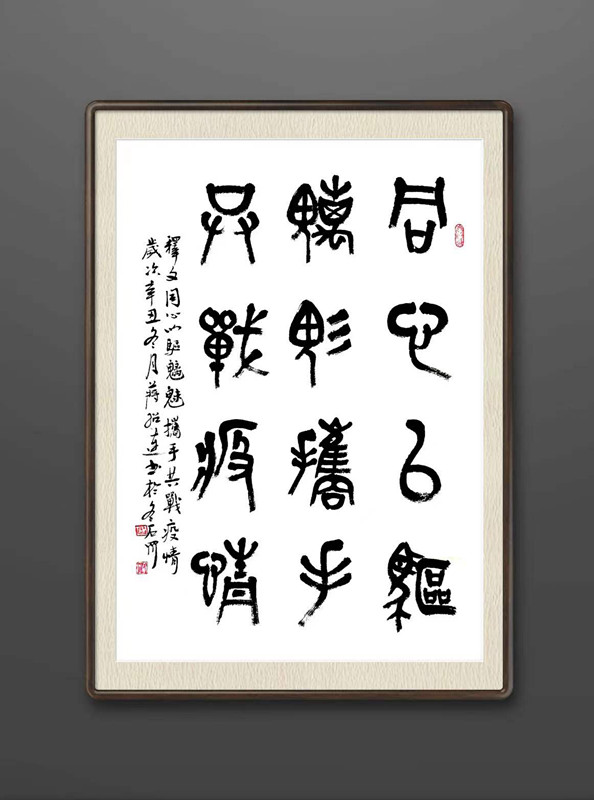 同心以驅
魑魅攜手
共戰疫情
釋文同心以驅魑魅攜手共戰疫情
歲次辛丑冬月蔣書於